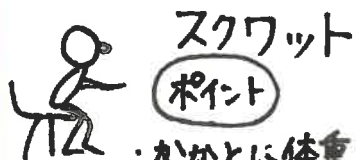 スクワット
ポイント
・かかとに体重